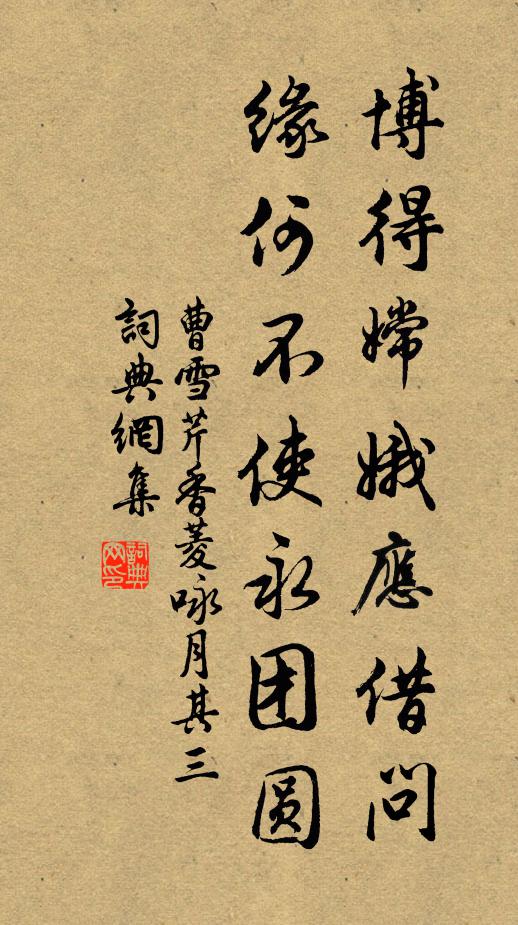 博得嫦娥應借問
緣何不使永团圆
曹雪芹香菱咏月其三
詞典網集
詞典
网印